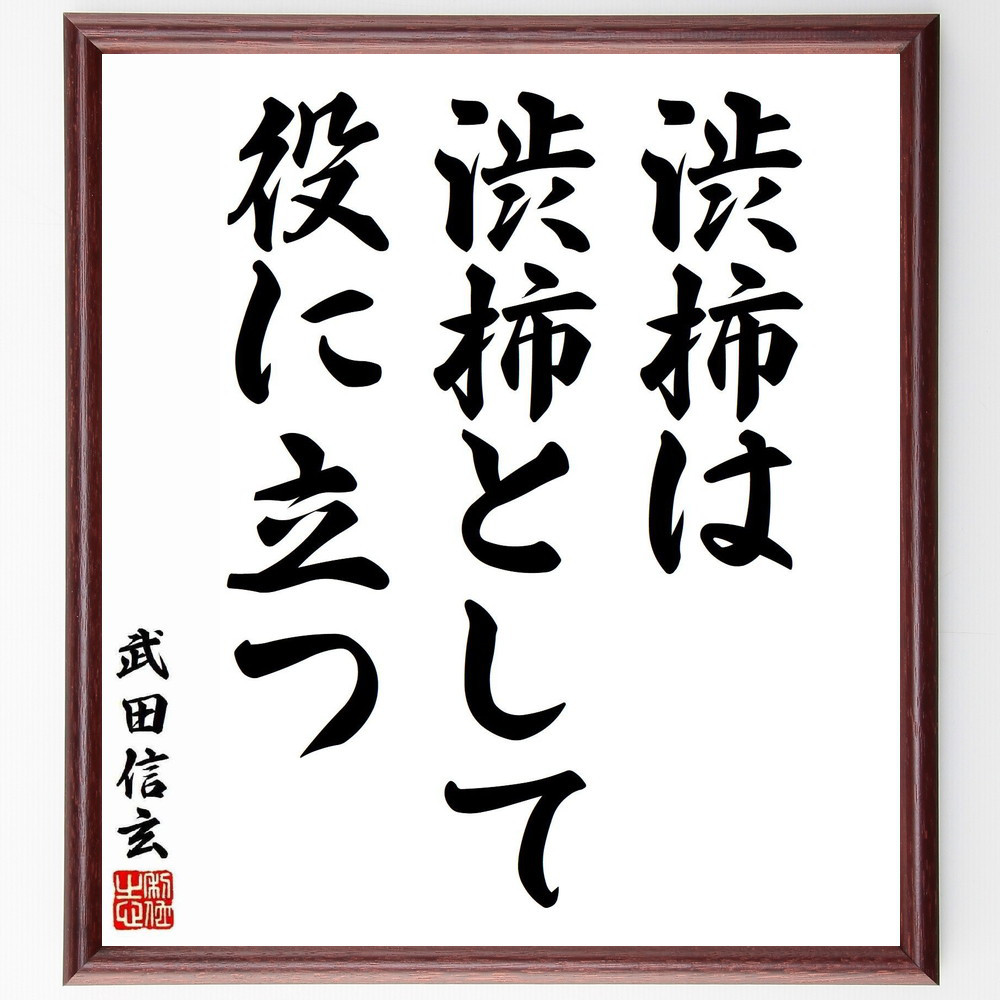 渋柿は
渋柿として
役に立つ
武田信玄